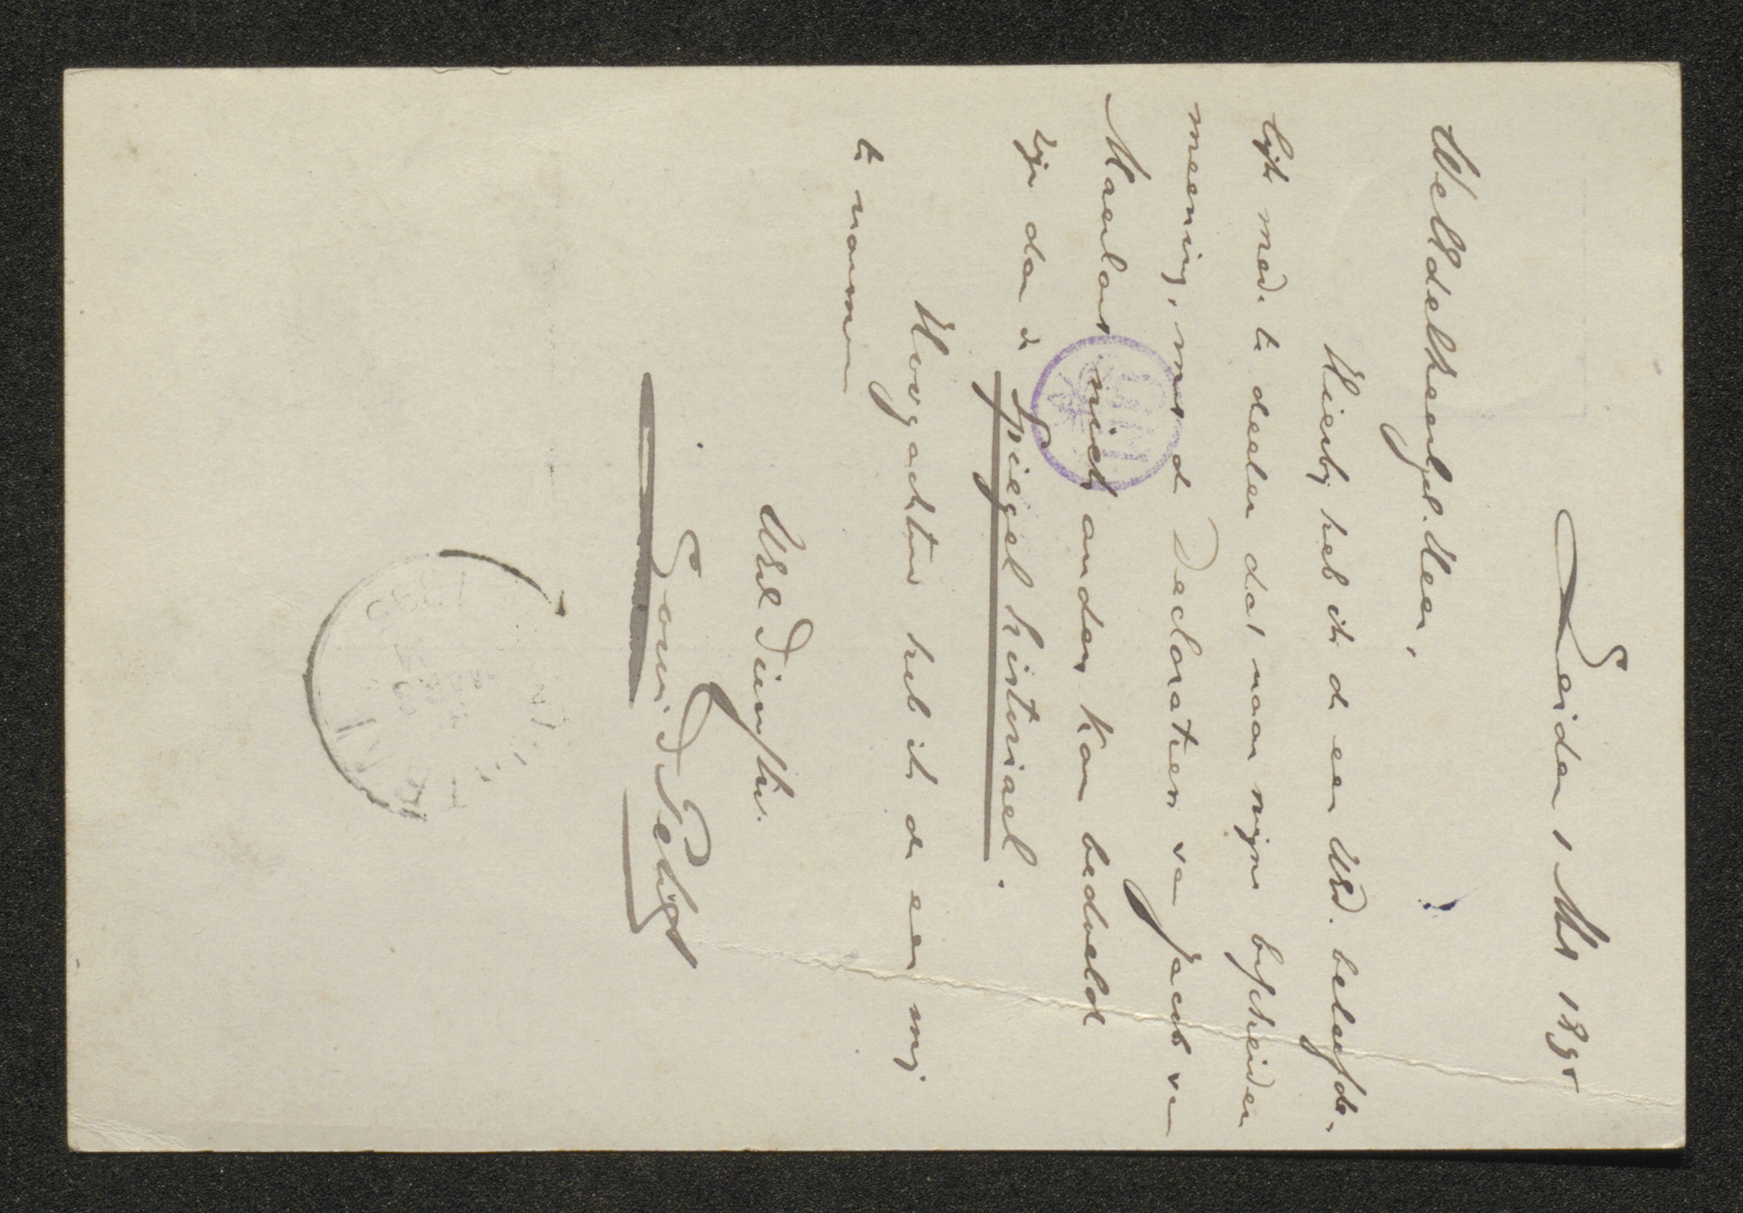 Leiden, 1 Mrt 1895
WelEdelZeergel. Heer,
Hierbij heb ik de eer UEd. beleefde-
lijk mede te deelen dat naar mijne bescheiden
meening, met de Declaratien van Jacob van
Maerlant niet anders kan bedoeld
zijn dan de Spiegel historiael.
Hoogachtend heb ik de eer mij
te noemen
UEd Dienstw.
Louis D Petit